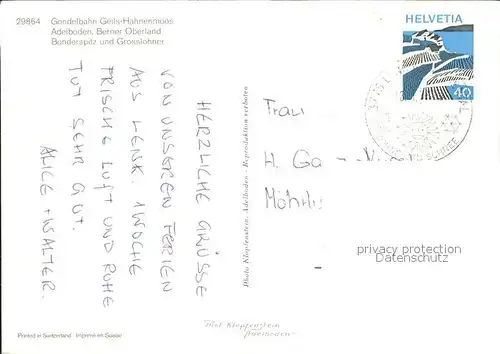 29864 Gondelbahn Geils-Hahnenmoos
Adelboden, Berner Oberland
Bonderspitz und Grosslohner
HELVETIA
40
HERZLICHE GRÜSSE
VON UNSEREN FERIEN
AUS LENK. 1 WOCHE
FRISCHE LUFT UND RUHE
TUT SEHR GUT.
ALICE + WALTER.
Photo Klopfenstein, Adelboden - Reproduktion verboten
Frau
H.
privacy protection
Datenschutz
Printed in Switzerland Imprimé en Suisse
Phot Klopfenstein
Adelboden